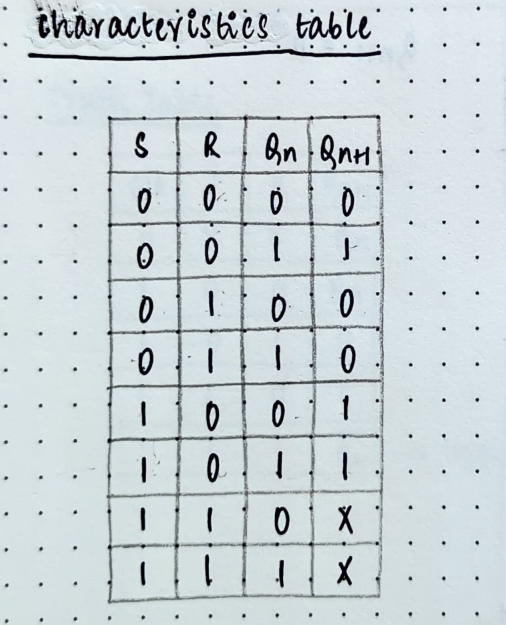 characteristics table
S R Qn Qn+1
0 0 0 0
0 0 1 1
0 1 0 0
0 1 1 0
1 0 0 1
1 0 1 1
1 1 0 X
1 1 1 X